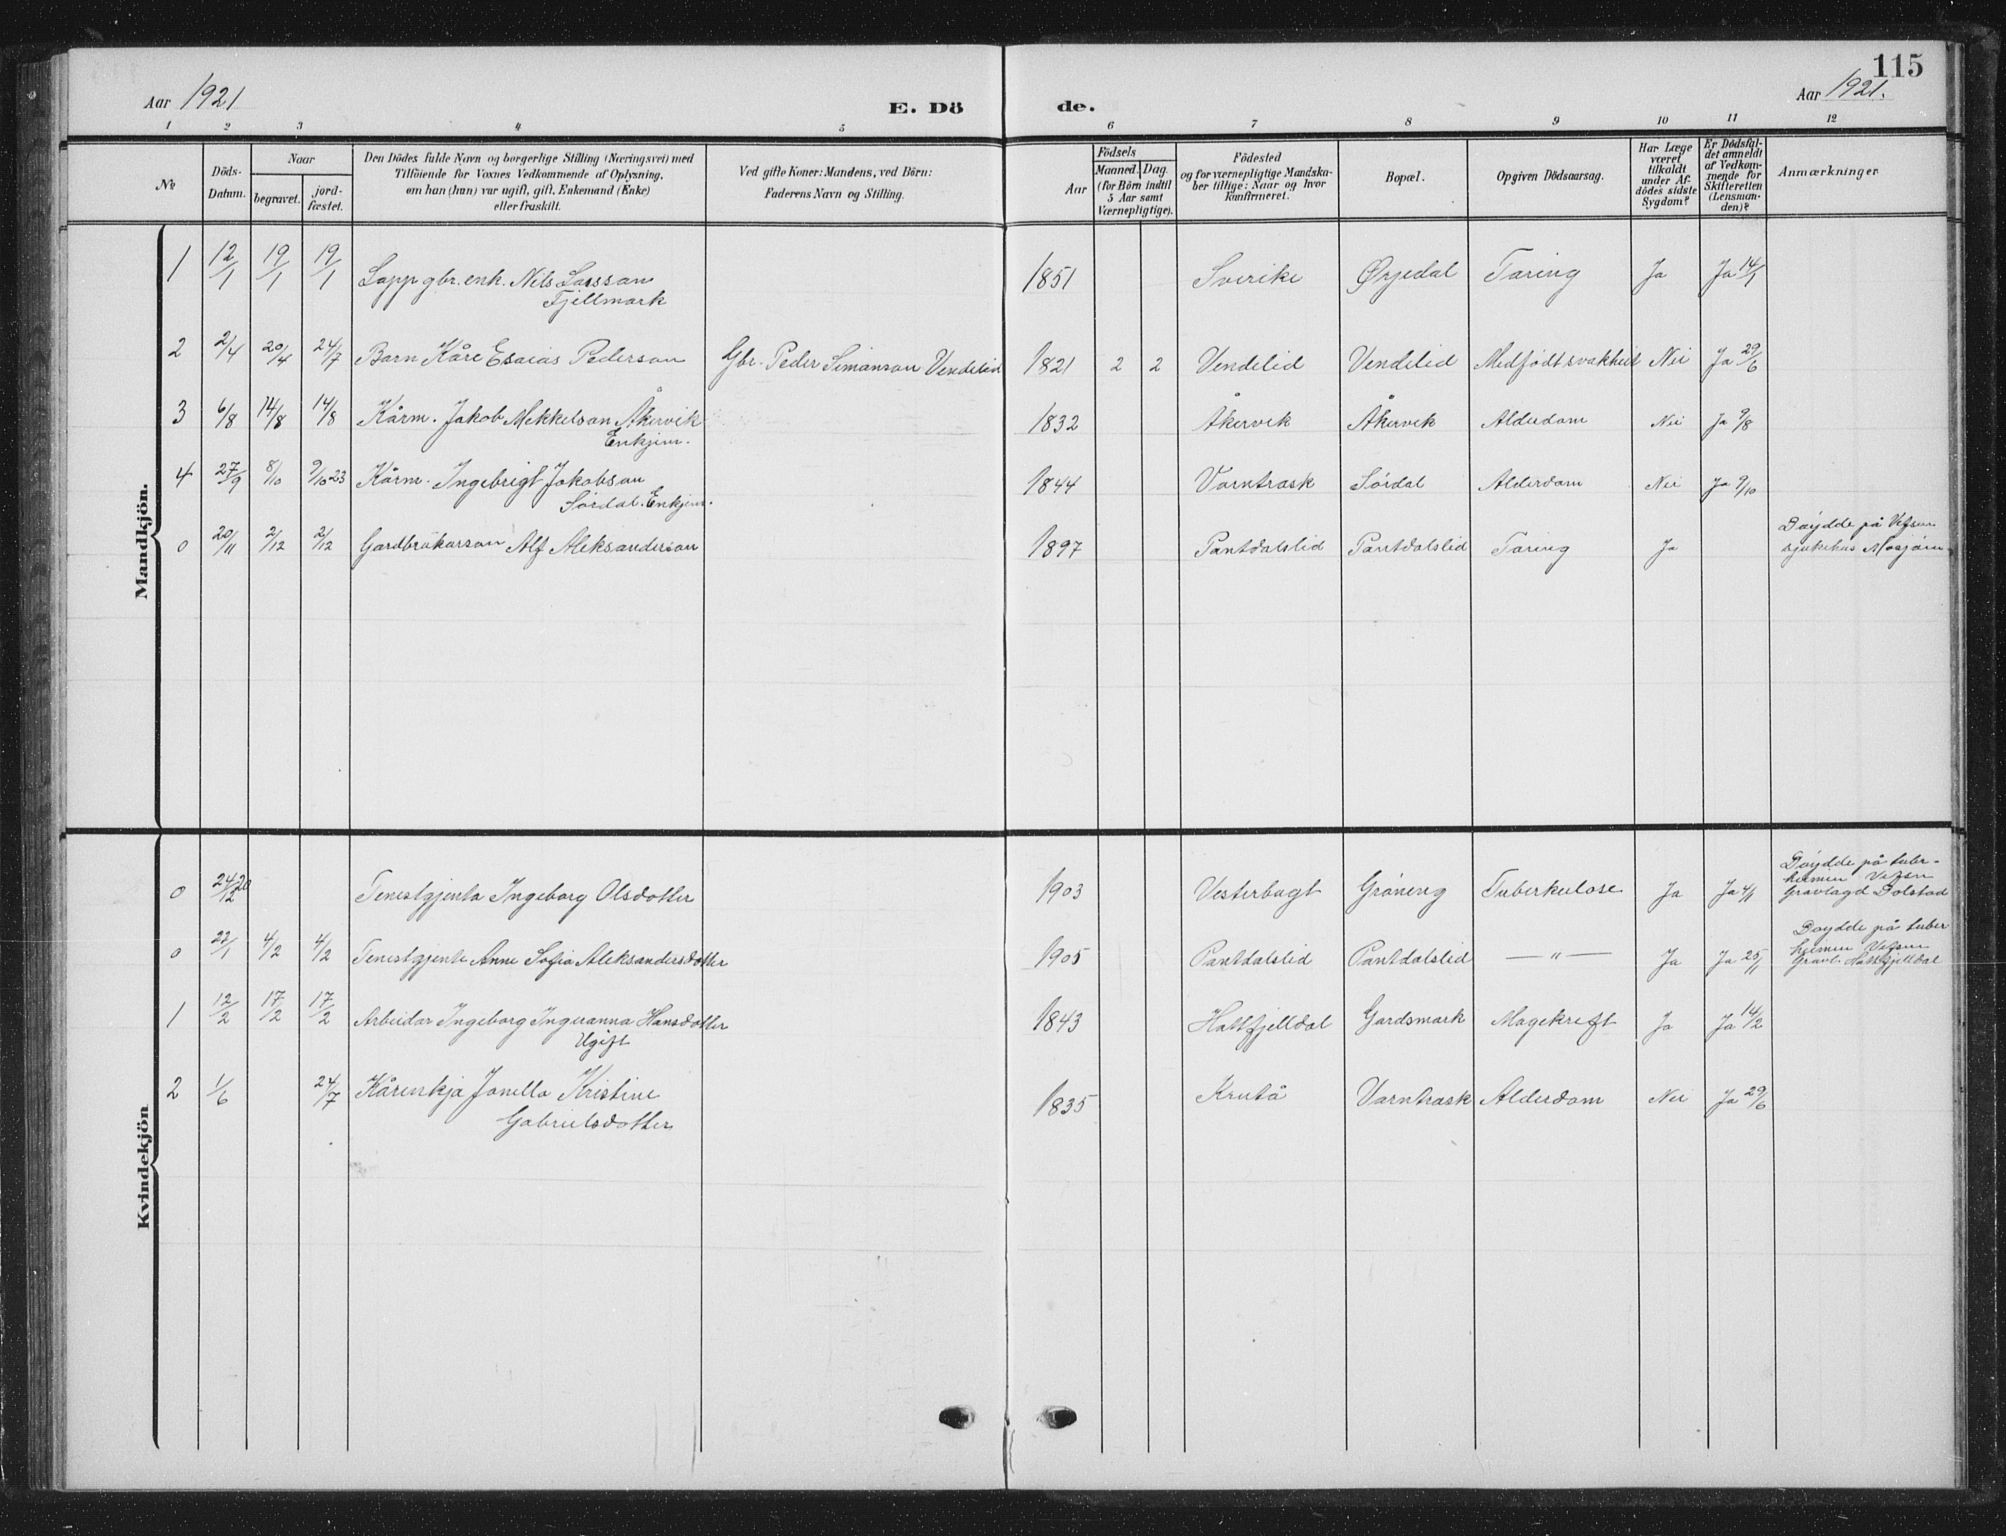 115
Aar 1921
E. Dö
de.
Aar 1921.
1 2 3 4 5 6 7 8 9 10 11 12
No
Döds-
Datum.
Naar
begravet.
jord-
fæstet.
Den Dödes fulde Navn og borgerlige Stilling (Næringsvei) med
Tilföiende for Voxnes Vedkommende af Oplysning,
om han (hun) var ugift, gift, Enkemand (Enke)
eller fraskilt.
Ved gifte Koner: Mandens, ved Börn:
Faderens Navn og Stilling.
Födsels
Aar
Maaned.
Dag
(for Börn indtil
5 Aar samt
Værnepligtige).
Födested
og for værnepligtige Mandska-
ber tillige: Naar og hvor
konfirmeret.
Bopæl.
Opgiven Dödsaarsag.
Har Læge
været
tilkaldt
under Af-
dödes sidste
Sygdom?
Er Dödsfal-
det anmeldt
af Vedkom-
mende for
Skifteretten
(Lensman-
den)?
Anmærkninger
Mandkjön.
1 12/1 19/1 19/1 Lapp gbr. enk. Nils Larsson 1851 Sverike Ørjedal Tæring Ja Ja 14/1
Fjellmark
2 2/4 20/4 24/7 Barn Kåre Esaias Pederson Gbr. Peder Simonson Vendelid 1821 2 2 Vendelid Vendelid Medfødt svakheit Nei Ja 29/6
3 6/8 14/8 14/8 Kårm. Jakob Mekkelson Åkervik 1832 Åkervik Åkervik Alderdom Nei Ja 9/8
Enkjem.
4 27/9 8/10 9/10 23 Kårm. Ingebrigt Jakobson 1844 Varntrask Sørdal Alderdom Nei Ja 9/10
Sørdal. Enkjem.
0 20/11 2/12 2/12 Gardbrukarson Alf Aleksanderson 1897 Pantdalslid Pantdalslid Tæring Ja Døydde på Vefsn
sjukehus Mosjøen
Kvindekjön
0 24/12 20 Tenestgjenta Ingeborg Olsdotter 1903 Vesterbugt Grøneng Tuberkulose Ja Ja 4/1 Døydde på tubr-
heimen Vefsn
Gravlagd Dolstad
0 22/1 4/2 4/2 Tenestgjente Anne Sofia Aleksandersdotter 1905 Pantdalslid Pantdalslid — " — Ja Ja 25/1 Døydde på tuber
heimen Vefsn
Gravl. Hattfjelldal
1 12/2 17/2 17/2 Arbeidar Ingeborg Ingeranna Hansdotter 1843 Hattfjelldal Gardsmark Magekreft Ja Ja 14/2
Ugift
2 1/6 24/7 Kårenkja Jonella Kristine 1835 Krutå Varntrask Alderdom Nei Ja 29/6
Gabrielsdotter